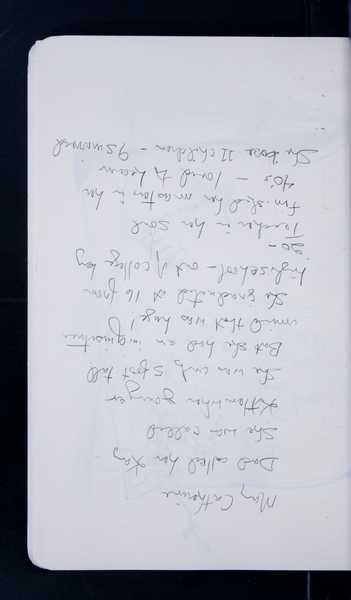 Mary Catherine
Dad called her Kay
She was called
Kathleen when younger
She was only 5 foot tall
But she had an inquisitive
mind that was huge!
She graduated at 16 from
high school - out of college by
20 -
Teacher in her soul
Finished her masters in her
40's - loved to learn
She bore 11 children - 9 survived